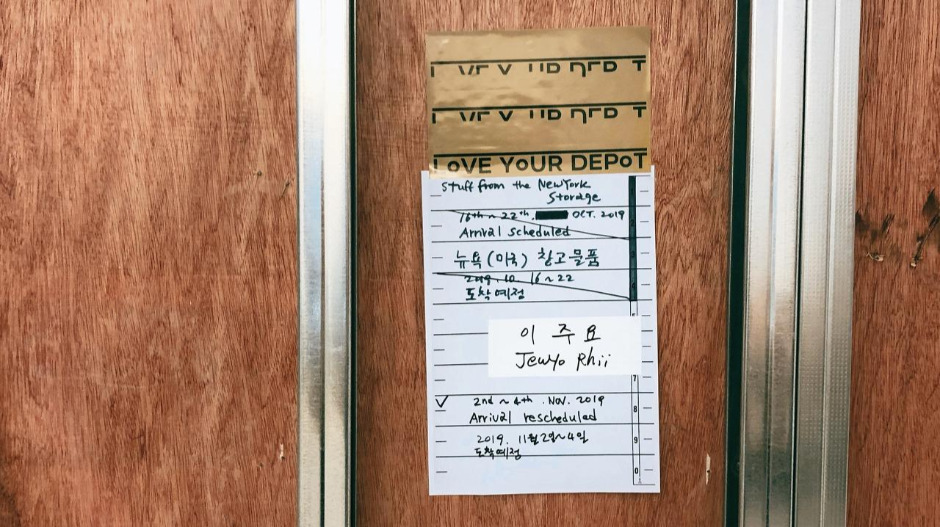 LOVE YOUR DEPOT
Stuff from the New York
Storage
16th ~ 22th. OCT. 2019
Arrival scheduled
뉴욕(미국) 창고 물품
2019. 10 16~22
도착예정
이 주 요
Jewyo Rhii
7
✓ 2nd ~ 4th. Nov. 2019
8
Arrival rescheduled
2019. 11월2일~4일
9
도착예정
0